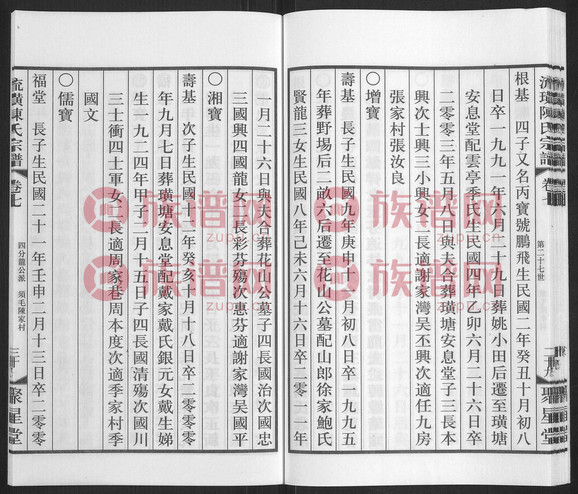 流璜陳氏宗譜
卷七
第二十七世
聚星堂
根基 四子又名丙寶號鵬飛生民國二年癸丑十月初八
日卒一九九一年六月二十九日葬姚小田后遷至璜塘
安息堂配雲亭季氏生民國四年乙卯六月二十六日卒
二〇〇三年五月八日與夫合葬璜塘安息堂子三長本
興次士興三小興女二長適謝家灣吴丕興次適任九房
張家村張汝良
〇增寶
壽基 長子生民國九年庚申十一月初八日卒一九九五
年葬野場后二畝六后遷至花山公墓配山郎徐家鮑氏
賢龍三女生民國八年己未六月十六日卒二〇一一年
一月二十六日與夫合葬花山公墓子四長國治次國忠
三國興四國龍女二長彩芬殤次惠芬適謝家灣吴國平
〇湘寶
壽基 次子生民國十二年癸亥十月十八日卒二〇〇〇
年九月七日葬璜塘安息堂配戴家戴氏銀元女戴生娣
生一九二四年甲子二月十五日子四長國清殤次國川
三士衝四士軍女二長適周家巷周本度次適季家村季
國文
〇儒寶
福堂 長子生民國二十一年壬申二月十三日卒二〇〇
流璜陳氏宗譜
卷七
四分龍公派 須毛陳家村
聚星堂
族谱网
zupu.cn
族谱网
zupu.cn
族谱网
zupu.cn
族谱网
zupu.cn